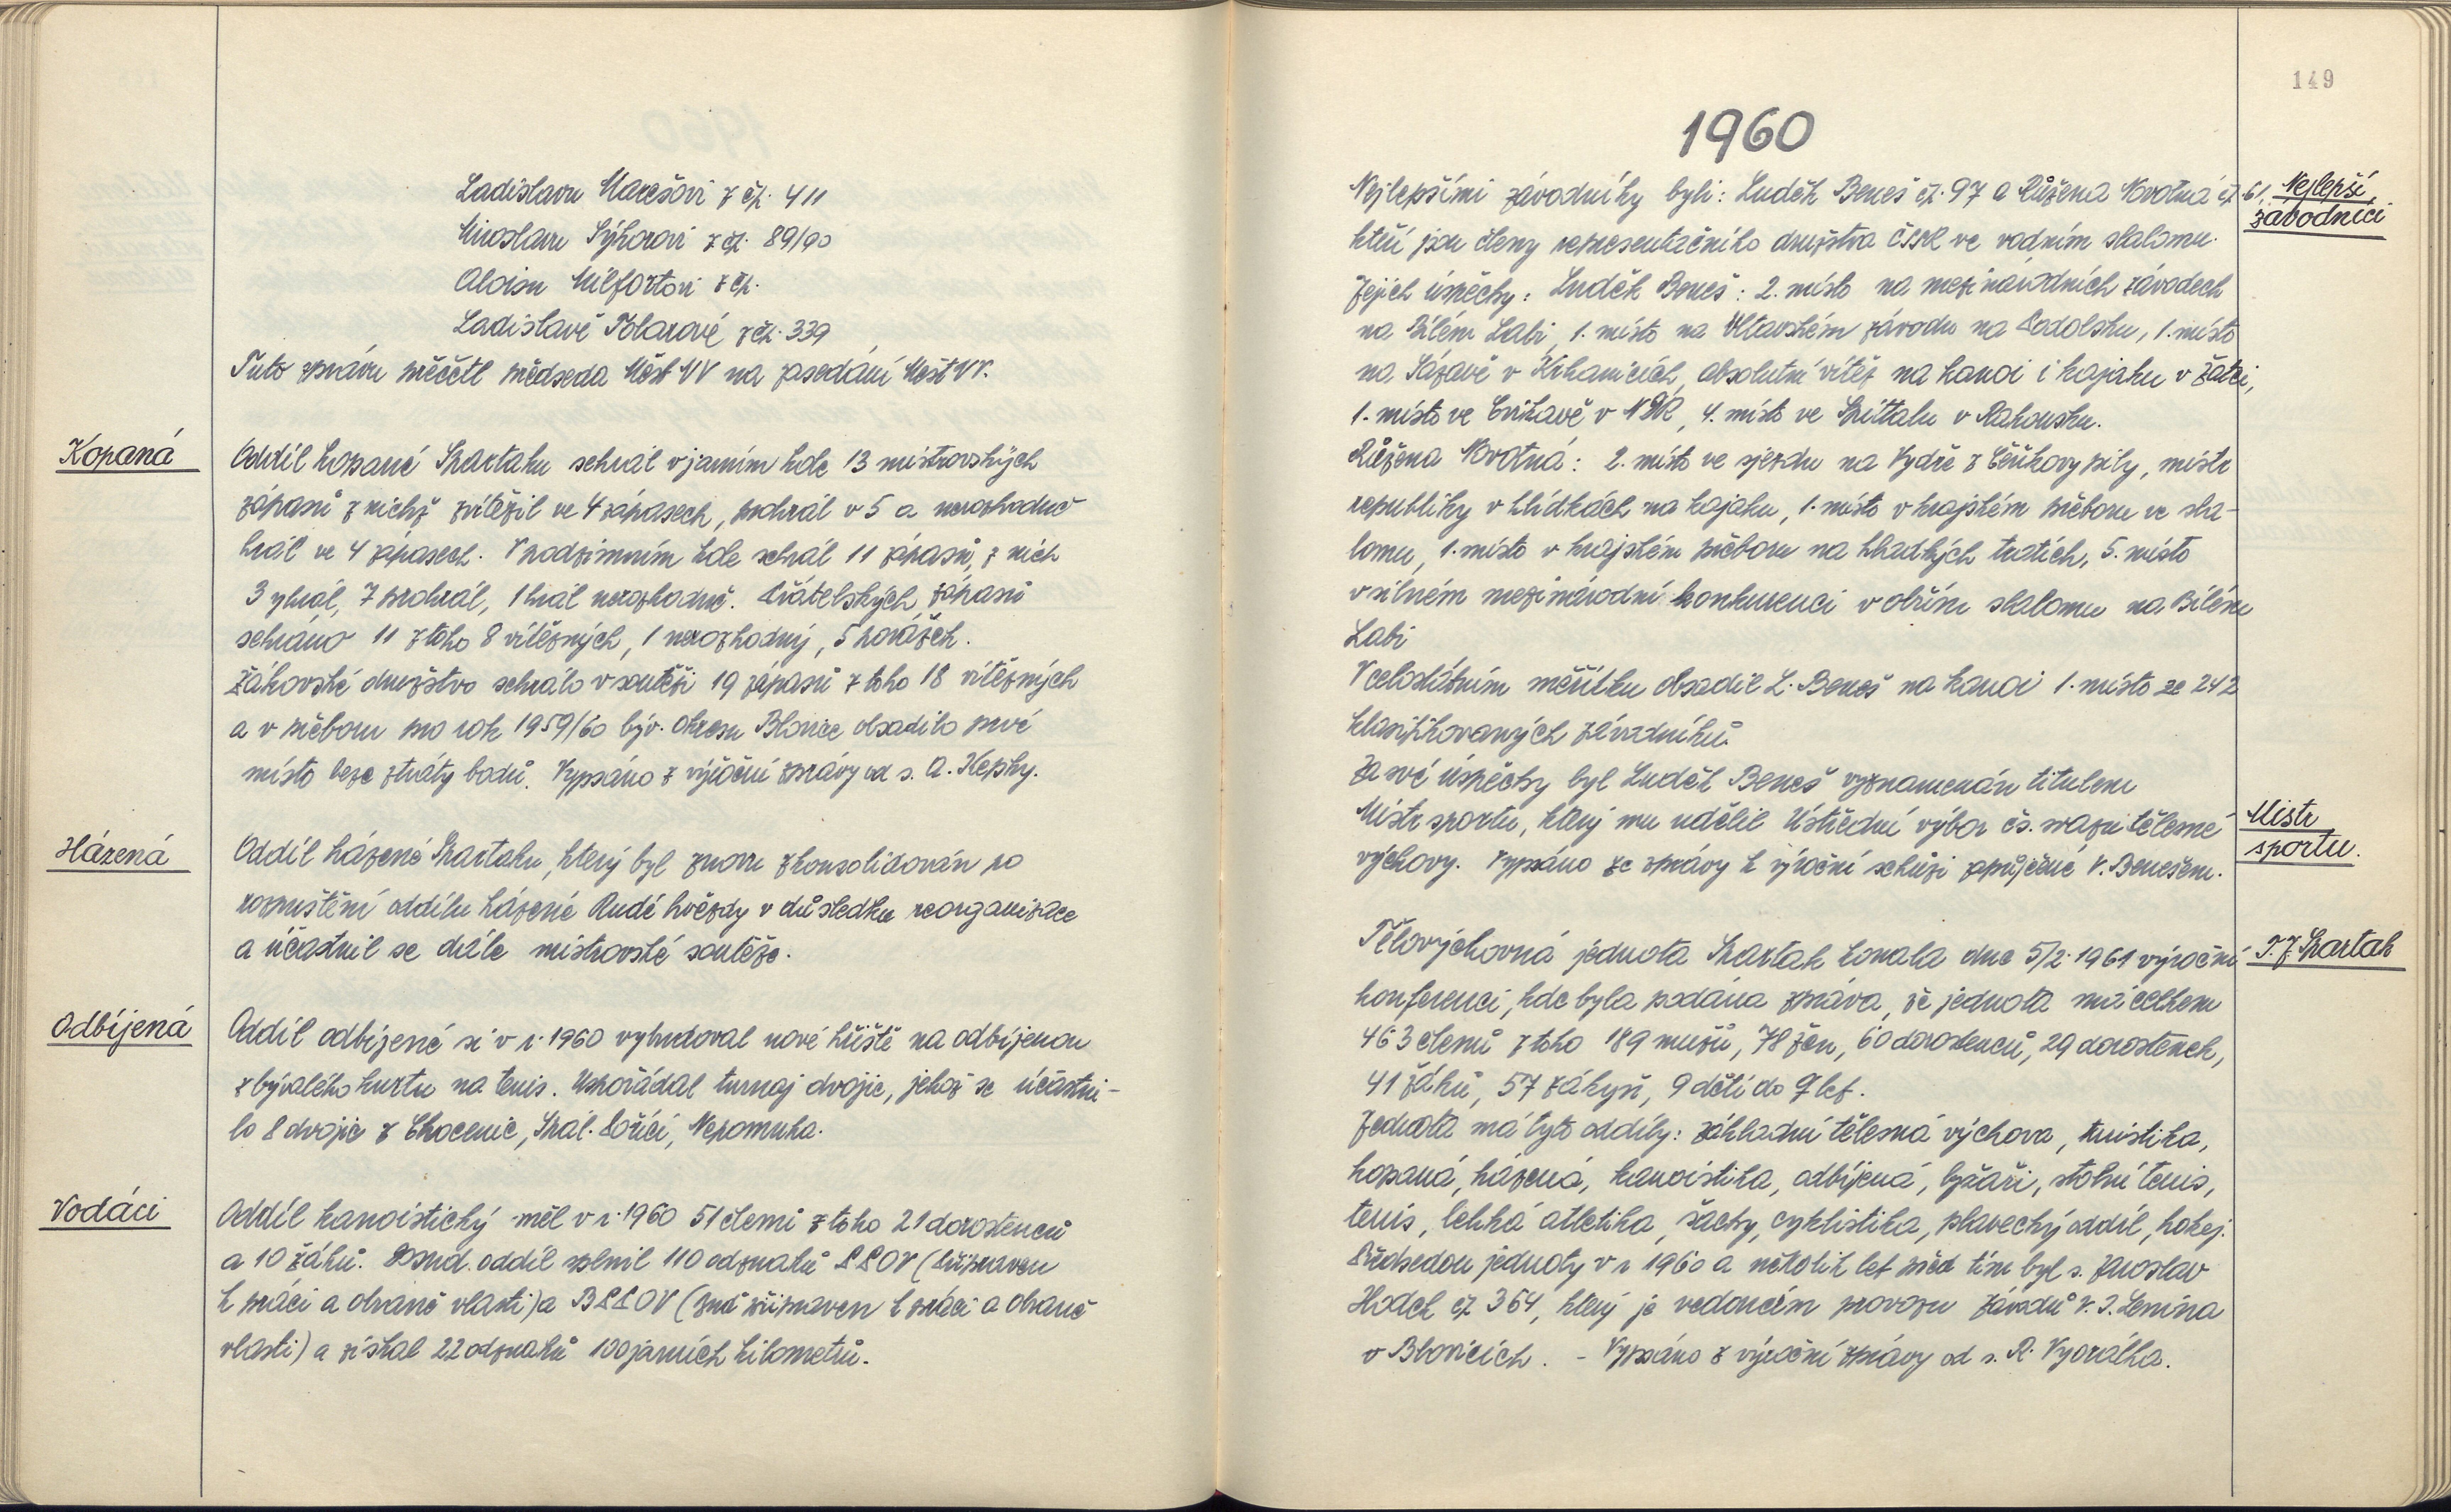 Ladislavu Marešovi z čp. 411
Miroslavu Sýkorovi z čp. 89/90
Aloisu Milfortovi z čp.
Ladislavě Tolarové z čp. 339
Tuto zprávu přečetl předseda Měst VV na zasedání Měst VV.
Kopaná
Oddíl kopané Spartaku sehrál v jarním kole 13 mistrovských
zápasů z nichž zvítězil ve 4 zápasech, prohrál v 5 a nerozhodně
hrál ve 4 zápasech. V podzimním kole sehrál 11 zápasů, z nich
3 yhrál, 7 prohrál, 1 hrál nerozhodně. Přátelských zápasů
sehráno 11 z toho 8 vítězných, 1 nerozhodný, 5 porážek.
Žákovské družstvo sehrálo v soutěži 19 zápasů z toho 18 vítězných
a v přeboru pro rok 1959/60 býv. okresu Blovice obsadilo prvé
místo beze ztráty bodů. Vypsáno z výroční zprávy od s. A. Kepky.
Házená
Oddíl házené Spartaku, který byl znovu zkonsolidován po
rozpuštění oddílu házené Rudé hvězdy v důsledku reorganizace
a účastnil se dále mistrovské soutěže.
Odbíjená
Oddíl odbíjené si v r. 1960 vybudoval nové hřiště na odbíjenou
z bývalého kurtu na tenis. Uspořádal turnaj dvojic, jehož se účastni-
lo 8 dvojic z Chocenic, Spál. Poříčí, Nepomuka.
Vodáci
Oddíl kanoistický měl v r. 1960 51 členů z toho 21 dorostenců
a 10 žáků. oddíl splnil 110 odznaků PPOV (Připraven
k práci a obraně vlasti) a BPPOV (Buď připraven k práci a obraně
vlasti) a získal 22 odznaků 100 jarních kilometrů.
149
1960
Nejlepšími závodníky byli: Luděk Beneš čp. 97 a Růžena Novotná čp. 61,
Nejlepší
závodníci
kteří jsou členy representačního družstva ČSSR ve vodním slalomu.
Jejich úspěchy: Luděk Beneš: 2. místo na mezinárodních závodech
na Bílém Labi, 1. místo na Vltavském závodu na Podolsku, 1. místo
na Sázavě v Krhanicích, absolutní vítěz na kanoi i kajaku v Žatci,
1. místo ve Cvikavě v NDR, 4. místo ve Spittalu v Rakousku.
Růžena Novotná: 2. místo ve sjezdu na Vydře z Čeňkovy pily, mistr
republiky v hlídkách na kajaku, 1. místo v krajském přeboru ve sla-
lomu, 1. místo v krajském přeboru na hladkých tratích, 5. místo
v silném mezinárodní konkurenci v obřím slalomu na Bílém
Labi
V celostátním měřítku obsadil L. Beneš na kanoi 1. místo ze 242
klasifikovaných závodníků.
Za své úspěchy byl Luděk Beneš vyznamenán titulem
Mistr sportu, který mu udělil Ústřední výbor čs. svazu tělesné
Mistr
sportu.
výchovy. Vypsáno ze zprávy k výroční schůzi zapůjčené V. Benešem.
Tělovýchovná jednota Spartak konala dne 5/2. 1961 výroční
T. J. Spartak
konferenci, kde byla podána zpráva, že jednota má celkem
463 členů z toho 189 mužů, 78 žen, 60 dorostenců, 29 dorostenek,
41 žáků, 57 žákyň, 9 dětí do 9 let.
Jednota má tyto oddíly: základní tělesná výchova, turistika,
kopaná, házená, kanoistika, odbíjená, lyžaři, stolní tenis,
tenis, lehká atletika, šachy, cyklistika, plavecký oddíl, hokej.
Předsedou jednoty v r. 1960 a několik let před tím byl s. Jaroslav
Hodek čp 364, který je vedoucím provozu Závodů V. I. Lenina
v Blovicích. - Vypsáno z výroční zprávy od s. R. Vyorálka.